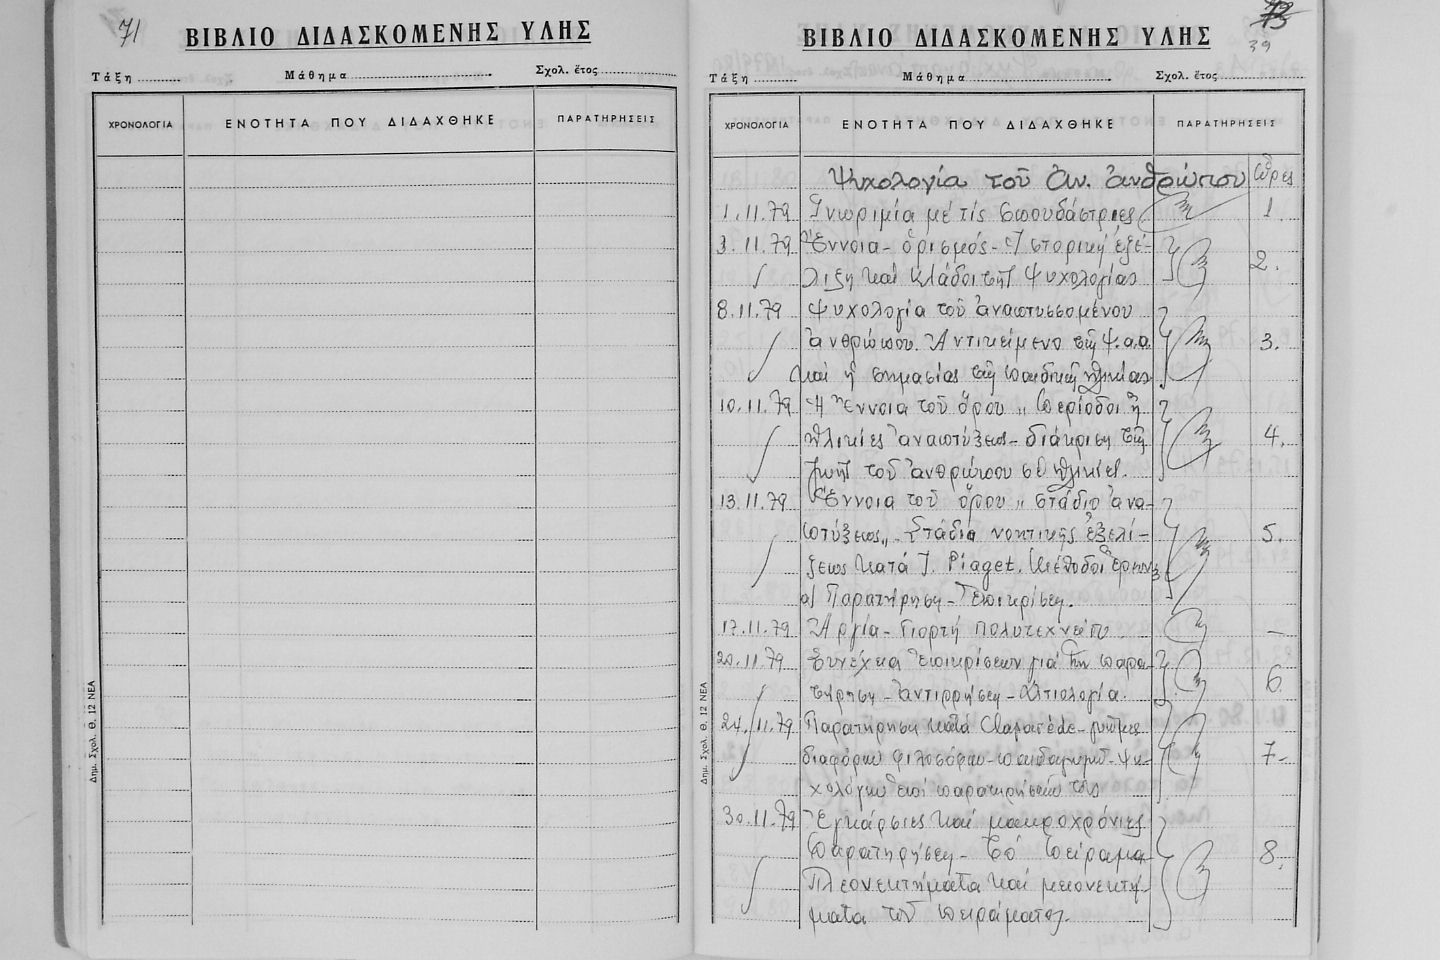 71
ΒΙΒΛΙΟ ΔΙΔΑΣΚΟΜΕΝΗΣ ΥΛΗΣ
Τάξη Μάθημα Σχολ. ἔτος
ΧΡΟΝΟΛΟΓΙΑ ΕΝΟΤΗΤΑ ΠΟΥ ΔΙΔΑΧΘΗΚΕ ΠΑΡΑΤΗΡΗΣΕΙΣ
Δημ. Σχολ. Θ. 12 ΝΕΑ
73
39
ΒΙΒΛΙΟ ΔΙΔΑΣΚΟΜΕΝΗΣ ΥΛΗΣ
Τάξη Μάθημα Σχολ. ἔτος
ΧΡΟΝΟΛΟΓΙΑ ΕΝΟΤΗΤΑ ΠΟΥ ΔΙΔΑΧΘΗΚΕ ΠΑΡΑΤΗΡΗΣΕΙΣ
Ψυχολογία τοῦ ἀν. ἀνθρώπου ὧρες
1.11.79 Γνωριμία μέ τίς σπουδάστριες 1.
3.11.79 Ἔννοια - ὁρισμός - Ἱστορική ἐξέ-
λιξη καί κλάδοι τῆς Ψυχολογίας 2.
8.11.79 Ψυχολογία τοῦ ἀναπτυσσομένου
ἀνθρώπου. Ἀντικείμενο τῆς Ψ.α.α. 3.
καί ἡ σημασίας τῆς παιδικῆς ἡλικίας
10.11.79 Ἡ ἔννοια τοῦ ὅρου „ περίοδοι ἤ
ἡλικίες ἀναπτύξεως - διάκριση τῆς 4.
ζωῆς τοῦ ἀνθρώπου σέ ἡλικίες.
13.11.79 Ἔννοια τοῦ ὅρου „ στάδιο ἀνα-
πτύξεως„ - Στάδια νοητικῆς ἐξελί- 5.
ξεως κατά J. Piaget. Μέθοδοι ἐρεύν.
α) Παρατήρηση - Ἐπικρίσεις.
17.11.79 Ἀργία - Γιορτή Πολυτεχνείου -
20.11.79 Συνέχεια ἐπικρίσεων γιά τήν παρα-
τήρηση - ἀντιρρήσεις - Αἰτιολογία. 6
24.11.79 Παρατήρηση κατά Claparède - γνῶμες
διαφόρων φιλοσόφων - παιδαγωγῶν - Ψυ- 7-
χολόγων ἐπί παρατηρήσεων τους
30.11.79 Ἐγκάρσιες καί μακροχρόνιες
παρατηρήσεις - Τό πείραμα 8.
Πλεονεκτήματα καί μειονεκτή-
ματα τοῦ πειράματος.
Δημ. Σχολ. Θ. 12 ΝΕΑ